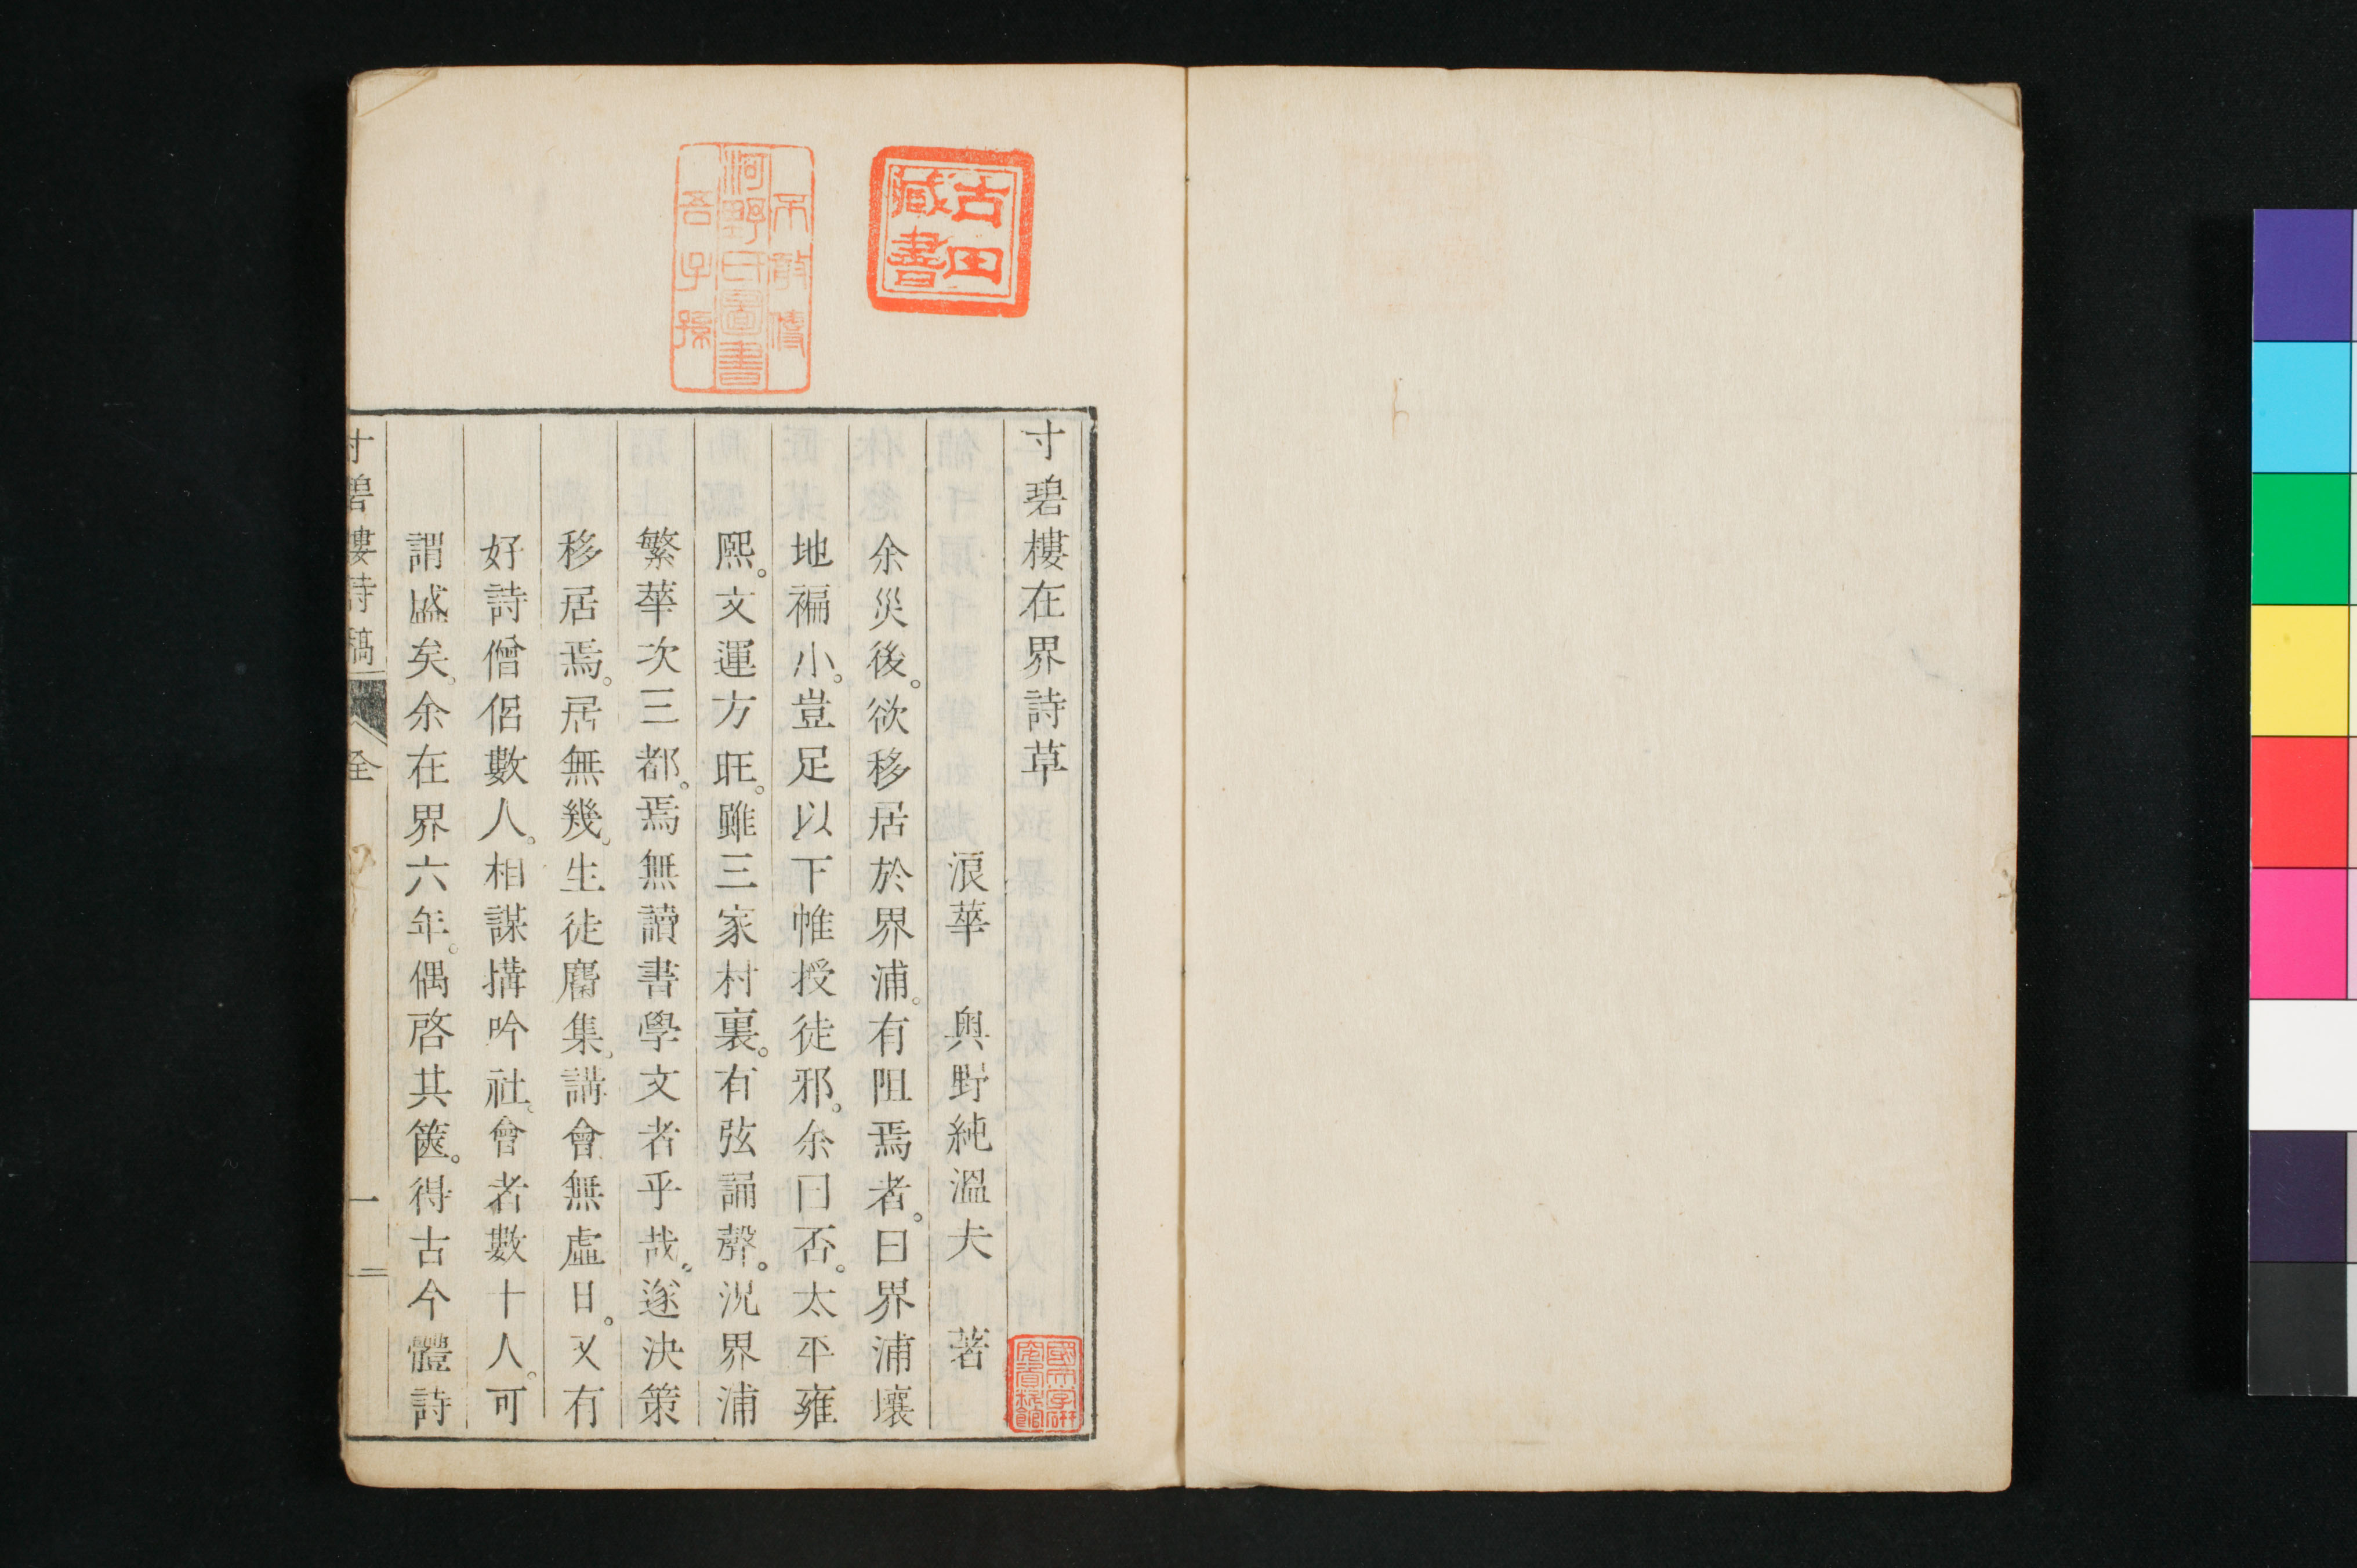 寸碧樓在界詩草
浪華　奥野純溫夫　著
余災後。欲移居於界浦。有阻焉者。曰界浦壤
地褊小。豈足以下帷授徒邪。余曰否。太平雍
熙。文運方旺。雖三家村裏。有弦誦聲。況界浦
繁華次三都。焉無讀書學文者乎哉。遂決策
移居焉。居無幾。生徒麕集。講會無虛日。又有
好詩僧侶數人。相謀搆吟社。會者數十人。可
謂盛矣。余在界六年。偶啓其篋。得古今體詩
寸碧樓詩稿
全
一
古田
藏書
不敢傳
河野氏圖書
吾子孫
國文学研
究資料館